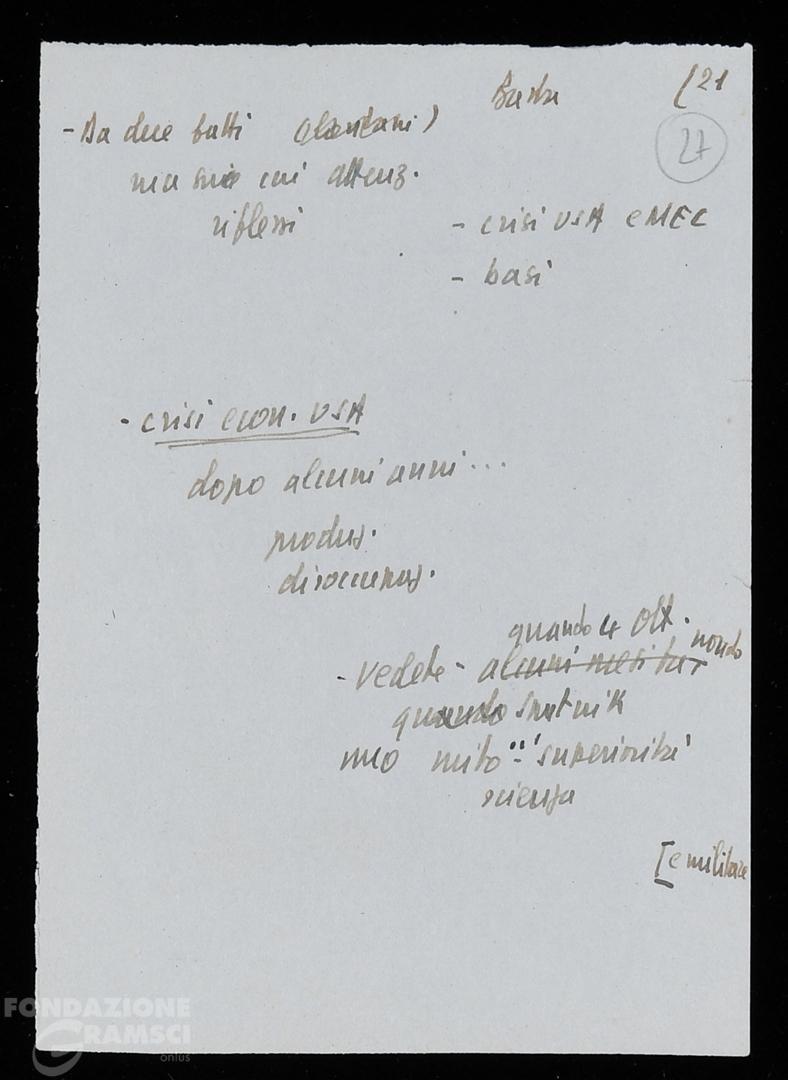 [21
27
- Da due fatti (lontani)
ma cui attenz.
riflessi
- crisi USA e MEC
- basi
- crisi econ. USA
dopo alcuni anni...
produz.
disoccupaz.
quando 4 ott.
- Vedete - alcuni mesi fa mondo
quando sputnik
mito "superiorità
scienza
[e militare
FONDAZIONE
GRAMSCI
onlus